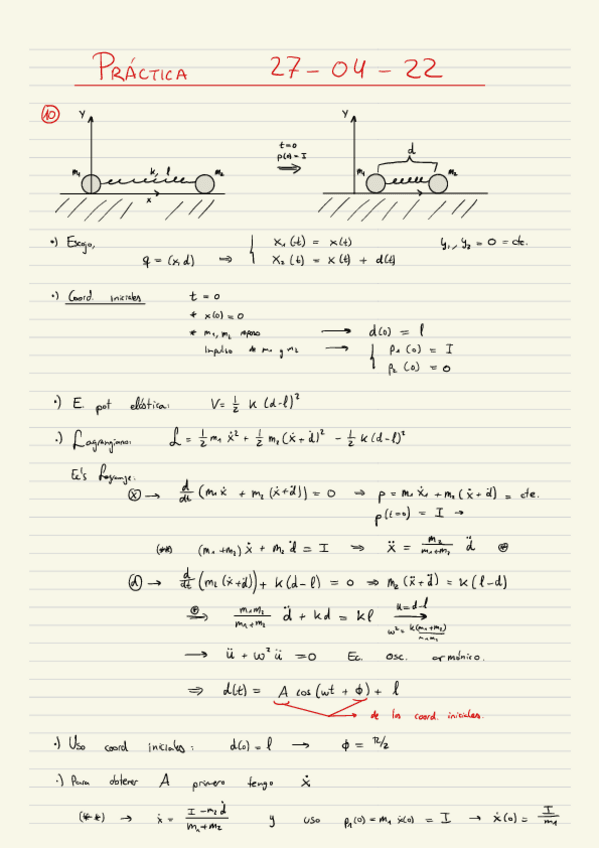 PRÁCTICA 27-04-22
10
y y
m₁ k, l m₂ x
t=0
p(0)=I
⇒
m₁ d m₂
•) Escojo,
q = (x,d) → { x₁(t) = x(t) y₁, y₂ = 0 = cte.
x₂(t) = x(t) + d(t)
•) Coord. iniciales t = 0
* x(0) = 0
* m₁, m₂ reposo → d(0) = l
Impulso de m₁ y m₂ → { p₁(0) = I
p₂(0) = 0
•) E. pot elástica: V = ½ k (d-l)²
•) Lagrangiano: L = ½ m₁ ẋ² + ½ m₂ (ẋ + ḋ)² - ½ k(d-l)²
Ec's Lagrange:
(x) → d/dt (m₁ẋ + m₂(ẋ+ḋ)) = 0 ⇒ p = m₁ẋ₁ + m₂(ẋ+ḋ) = cte.
p(t=0) = I →
(**) (m₁+m₂)ẋ + m₂ḋ = I ⇒ ẍ = m₂/(m₁+m₂) d̈
(d) → d/dt (m₂(ẋ+ḋ)) + k(d-l) = 0 ⇒ m₂(ẍ+d̈) = k(l-d)
⇒ m₁m₂/(m₁+m₂) d̈ + kd = kl u=d-l → ω² = k(m₁+m₂)/m₁m₂
→ ü + ω²u = 0 Ec. osc. armónico.
⇒ d(t) = A cos(ωt + ϕ) + l
→ de las coord. iniciales.
•) Uso coord iniciales: d(0) = l → ϕ = π/2
•) Para obtener A primero tengo ẋ
(**) → ẋ = (I-m₂ḋ)/(m₁+m₂) y uso p₁(0) = m₁ẋ(0) = I → ẋ(0) = I/m₁